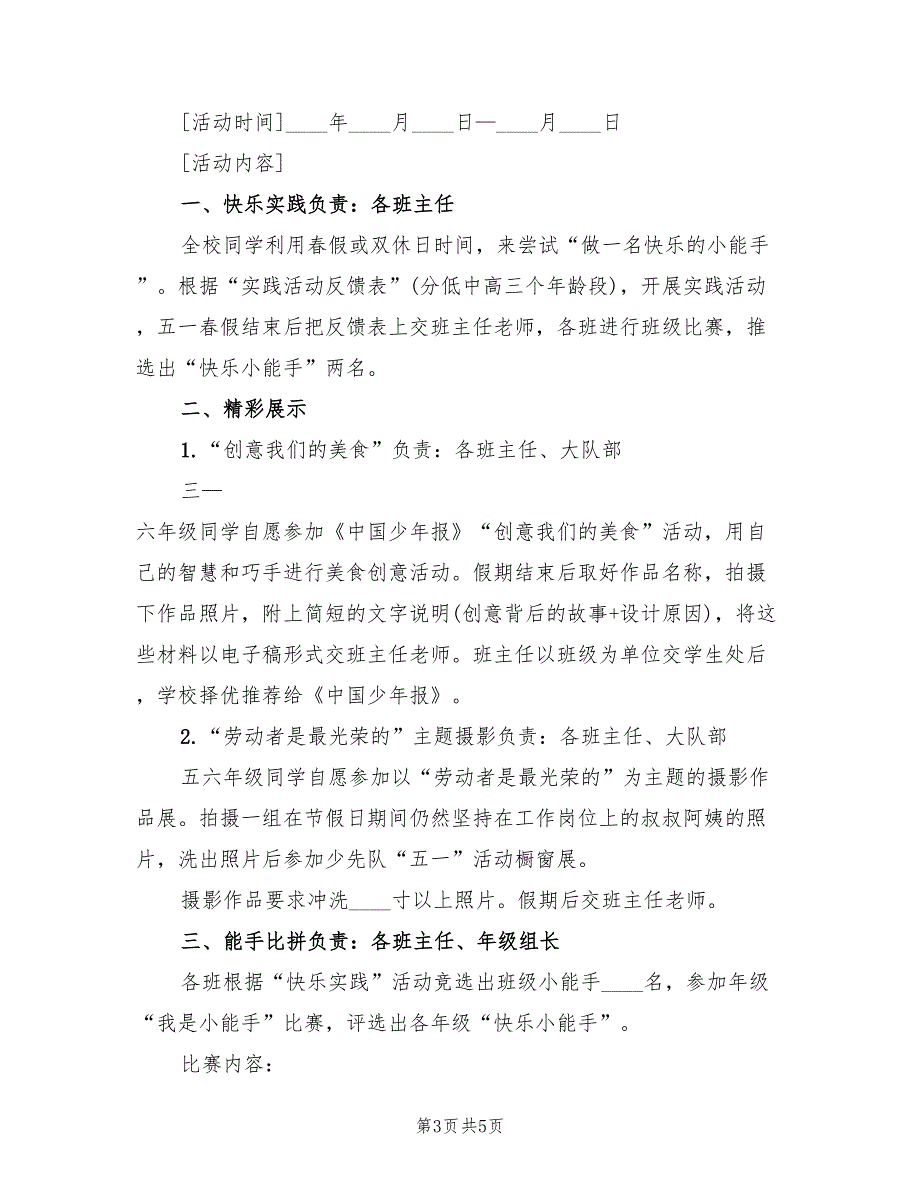 [活动时间]____年____月____日—____月____日
[活动内容]
一、快乐实践负责：各班主任
全校同学利用春假或双休日时间，来尝试“做一名快乐的小能手
”。根据“实践活动反馈表”(分低中高三个年龄段)，开展实践活动
，五一春假结束后把反馈表上交班主任老师，各班进行班级比赛，推
选出“快乐小能手”两名。
二、精彩展示
1.“创意我们的美食”负责：各班主任、大队部
三—
六年级同学自愿参加《中国少年报》“创意我们的美食”活动，用自
己的智慧和巧手进行美食创意活动。假期结束后取好作品名称，拍摄
下作品照片，附上简短的文字说明(创意背后的故事+设计原因)，将这
些材料以电子稿形式交班主任老师。班主任以班级为单位交学生处后
，学校择优推荐给《中国少年报》。
2.“劳动者是最光荣的”主题摄影负责：各班主任、大队部
五六年级同学自愿参加以“劳动者是最光荣的”为主题的摄影作
品展。拍摄一组在节假日期间仍然坚持在工作岗位上的叔叔阿姨的照
片，洗出照片后参加少先队“五一”活动橱窗展。
摄影作品要求冲洗____寸以上照片。假期后交班主任老师。
三、能手比拼负责：各班主任、年级组长
各班根据“快乐实践”活动竞选出班级小能手____名，参加年级
“我是小能手”比赛，评选出各年级“快乐小能手”。
比赛内容：
第3页共5页